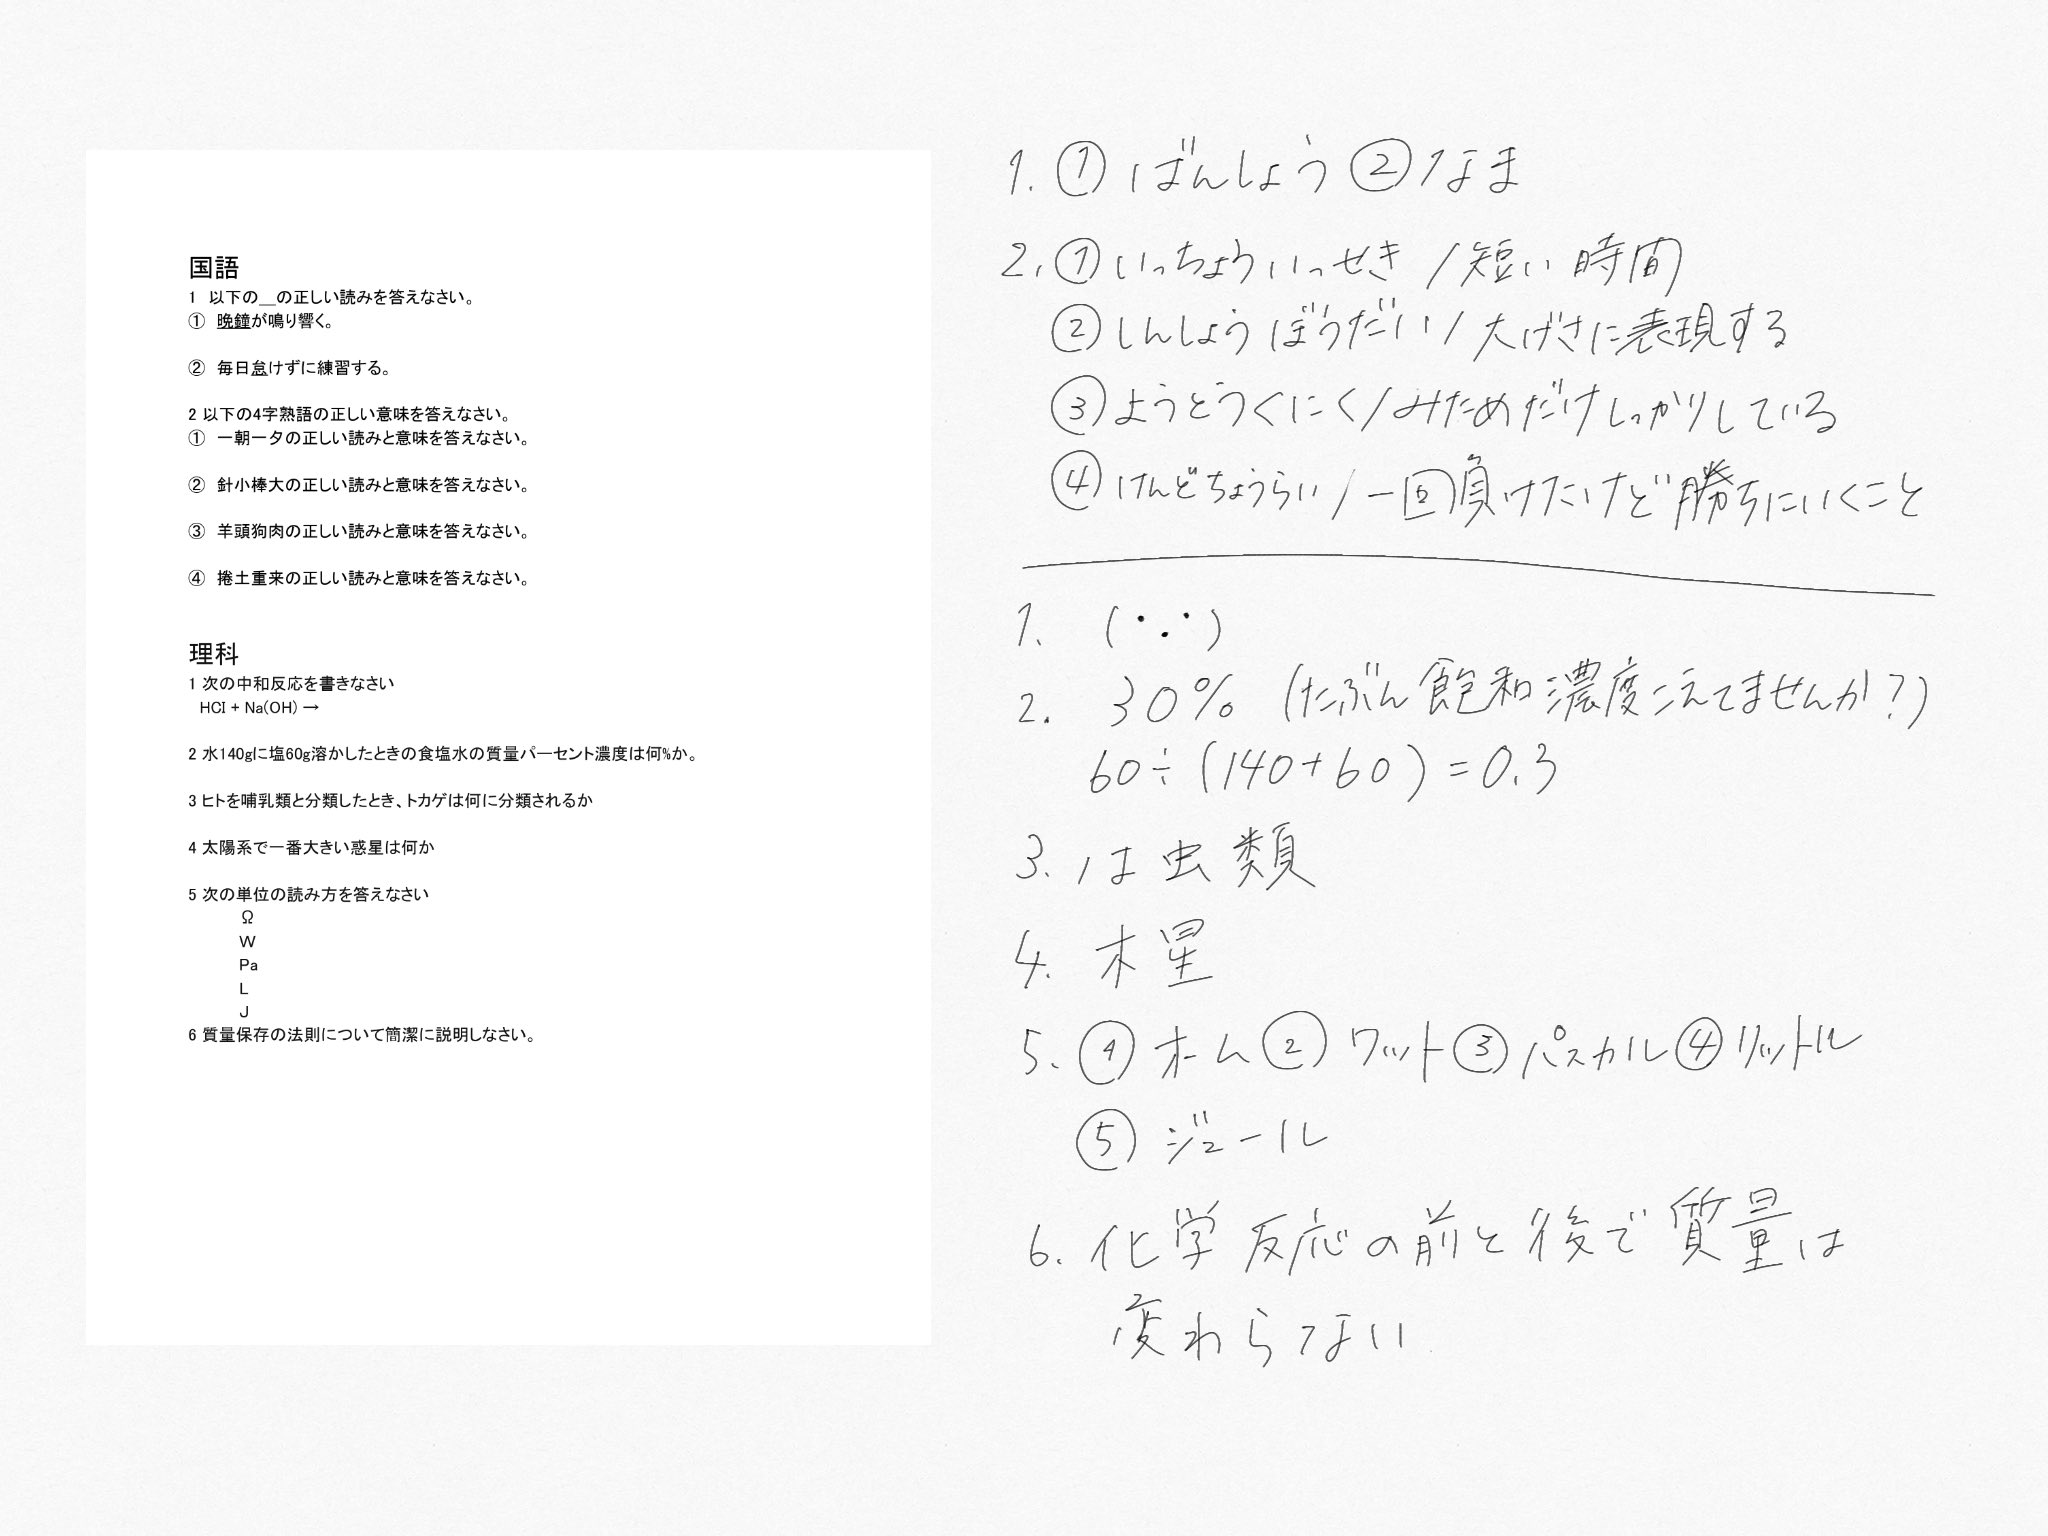 国語
1 以下の__の正しい読みを答えなさい。
① 晩鐘が鳴り響く。
② 毎日怠けずに練習する。
2 以下の4字熟語の正しい意味を答えなさい。
① 一朝一夕の正しい読みと意味を答えなさい。
② 針小棒大の正しい読みと意味を答えなさい。
③ 羊頭狗肉の正しい読みと意味を答えなさい。
④ 捲土重来の正しい読みと意味を答えなさい。
理科
1 次の中和反応を書きなさい
HCl + Na(OH) →
2 水140gに塩60g溶かしたときの食塩水の質量パーセント濃度は何%か。
3 ヒトを哺乳類と分類したとき、トカゲは何に分類されるか
4 太陽系で一番大きい惑星は何か
5 次の単位の読み方を答えなさい
Ω
W
Pa
L
J
6 質量保存の法則について簡潔に説明しなさい。
1. ① ばんしょう ② なま
2. ① いっちょういっせき / 短い時間
② しんしょうぼうだい / 大げさに表現する
③ ようとうくにく / みためだけしっかりしている
④ けんどちょうらい / 一回負けたけど勝ちにいくこと
1. (・.・)
2. 30% (たぶん飽和濃度こえてませんか?)
60÷(140+60)=0.3
3. は虫類
4. 木星
5. ① オーム ② ワット ③ パスカル ④ リットル
⑤ ジュール
6. 化学反応の前と後で質量は
変わらない